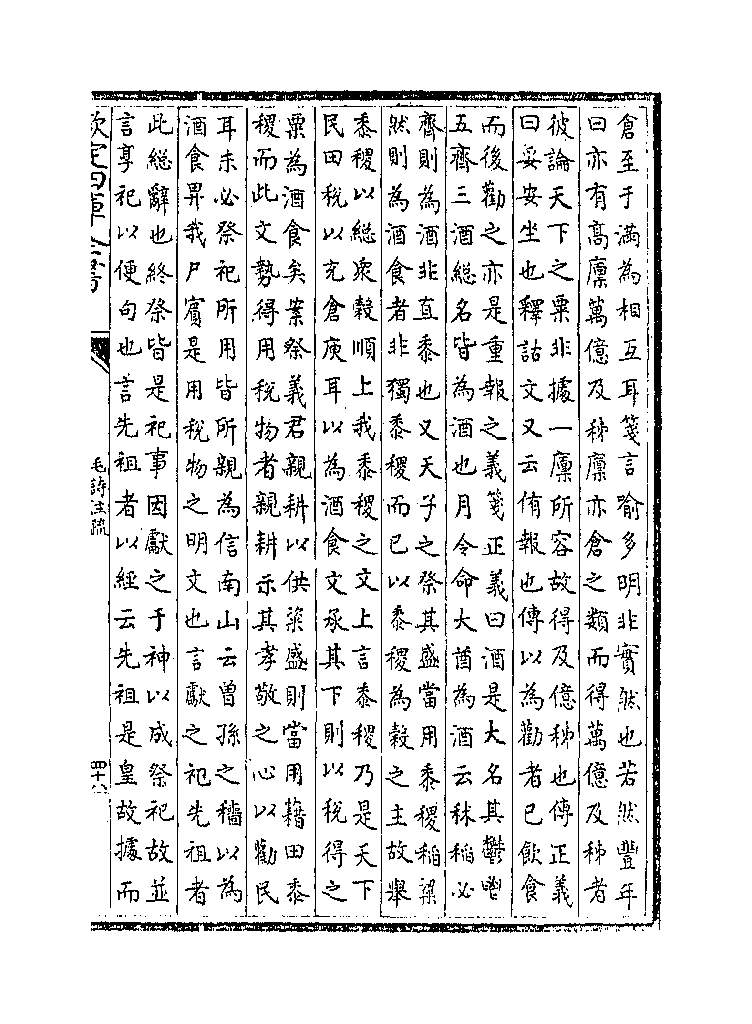 倉至于滿為相互耳箋言喻多明非實然也若然豐年
曰亦有高廩萬億及秭廩亦倉之類而得萬億及秭者
彼論天下之粟非據一廩所容故得及億秭也傳正義
曰妥安坐也釋詁文又云侑報也傳以為勸者已飲食
而後勸之亦是重報之義箋正義曰酒是大名其鬱鬯
五齊三酒總名皆為酒也月令命大酋為酒云秫稻必
齊則為酒非直黍也又天子之祭其盛當用黍稷稻粱
然則為酒食者非獨黍稷而已以黍稷為穀之主故舉
黍稷以總衆穀順上我黍稷之文上言黍稷乃是天下
民田稅以充倉庾耳以為酒食文承其下則以稅得之
粟為酒食矣案祭義君親耕以供粢盛則當用藉田黍
稷而此文勢得用稅物者親耕示其孝敬之心以勸民
耳未必祭祀所用皆所親為信南山云曾孫之穡以為
酒食畀我尸賓是用稅物之明文也言獻之祀先祖者
此總辭也終祭皆是祀事因獻之于神以成祭祀故並
言享祀以便句也言先祖者以經云先祖是皇故據而
欽定四庫全書
毛詩注疏
四十六